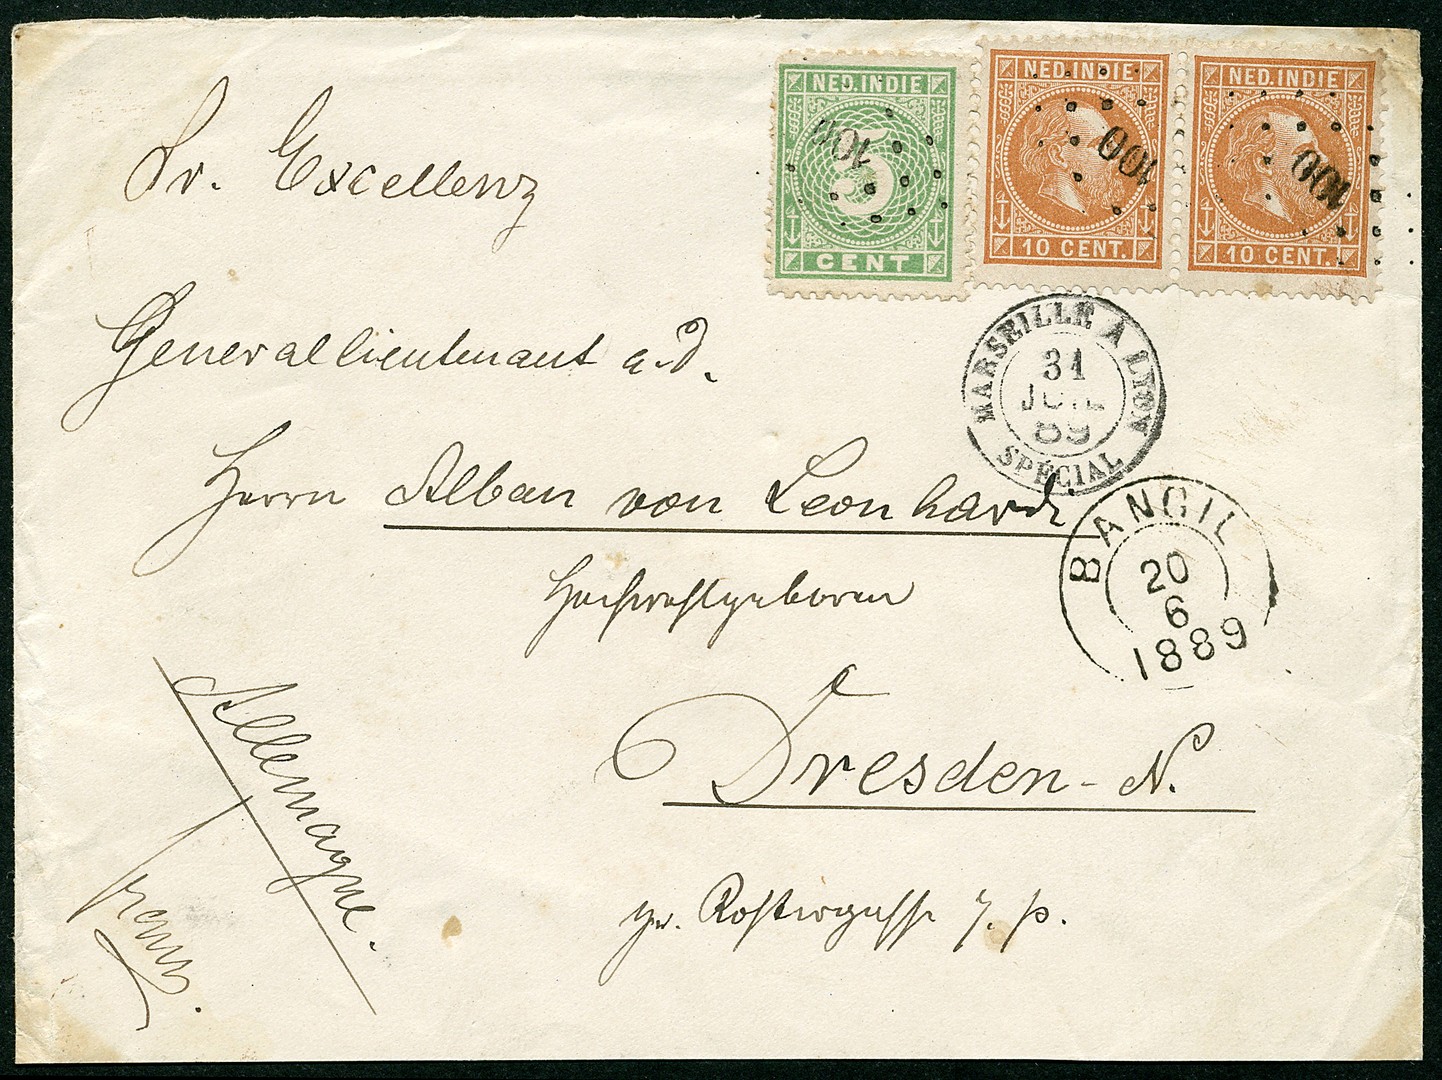 NED. INDIE
5
CENT
100
NED. INDIE
10 CENT.
100
NED. INDIE
10 CENT.
100
Sr. Excellenz
Generallieutenant a. D.
MARSEILLE A LYON
31
JUIL
89
SPÉCIAL
Herrn Alban von Leonhardi
BANGIL
20
6
1889
Hochwohlgeboren
Dresden-N.
Allemagne.
franco.